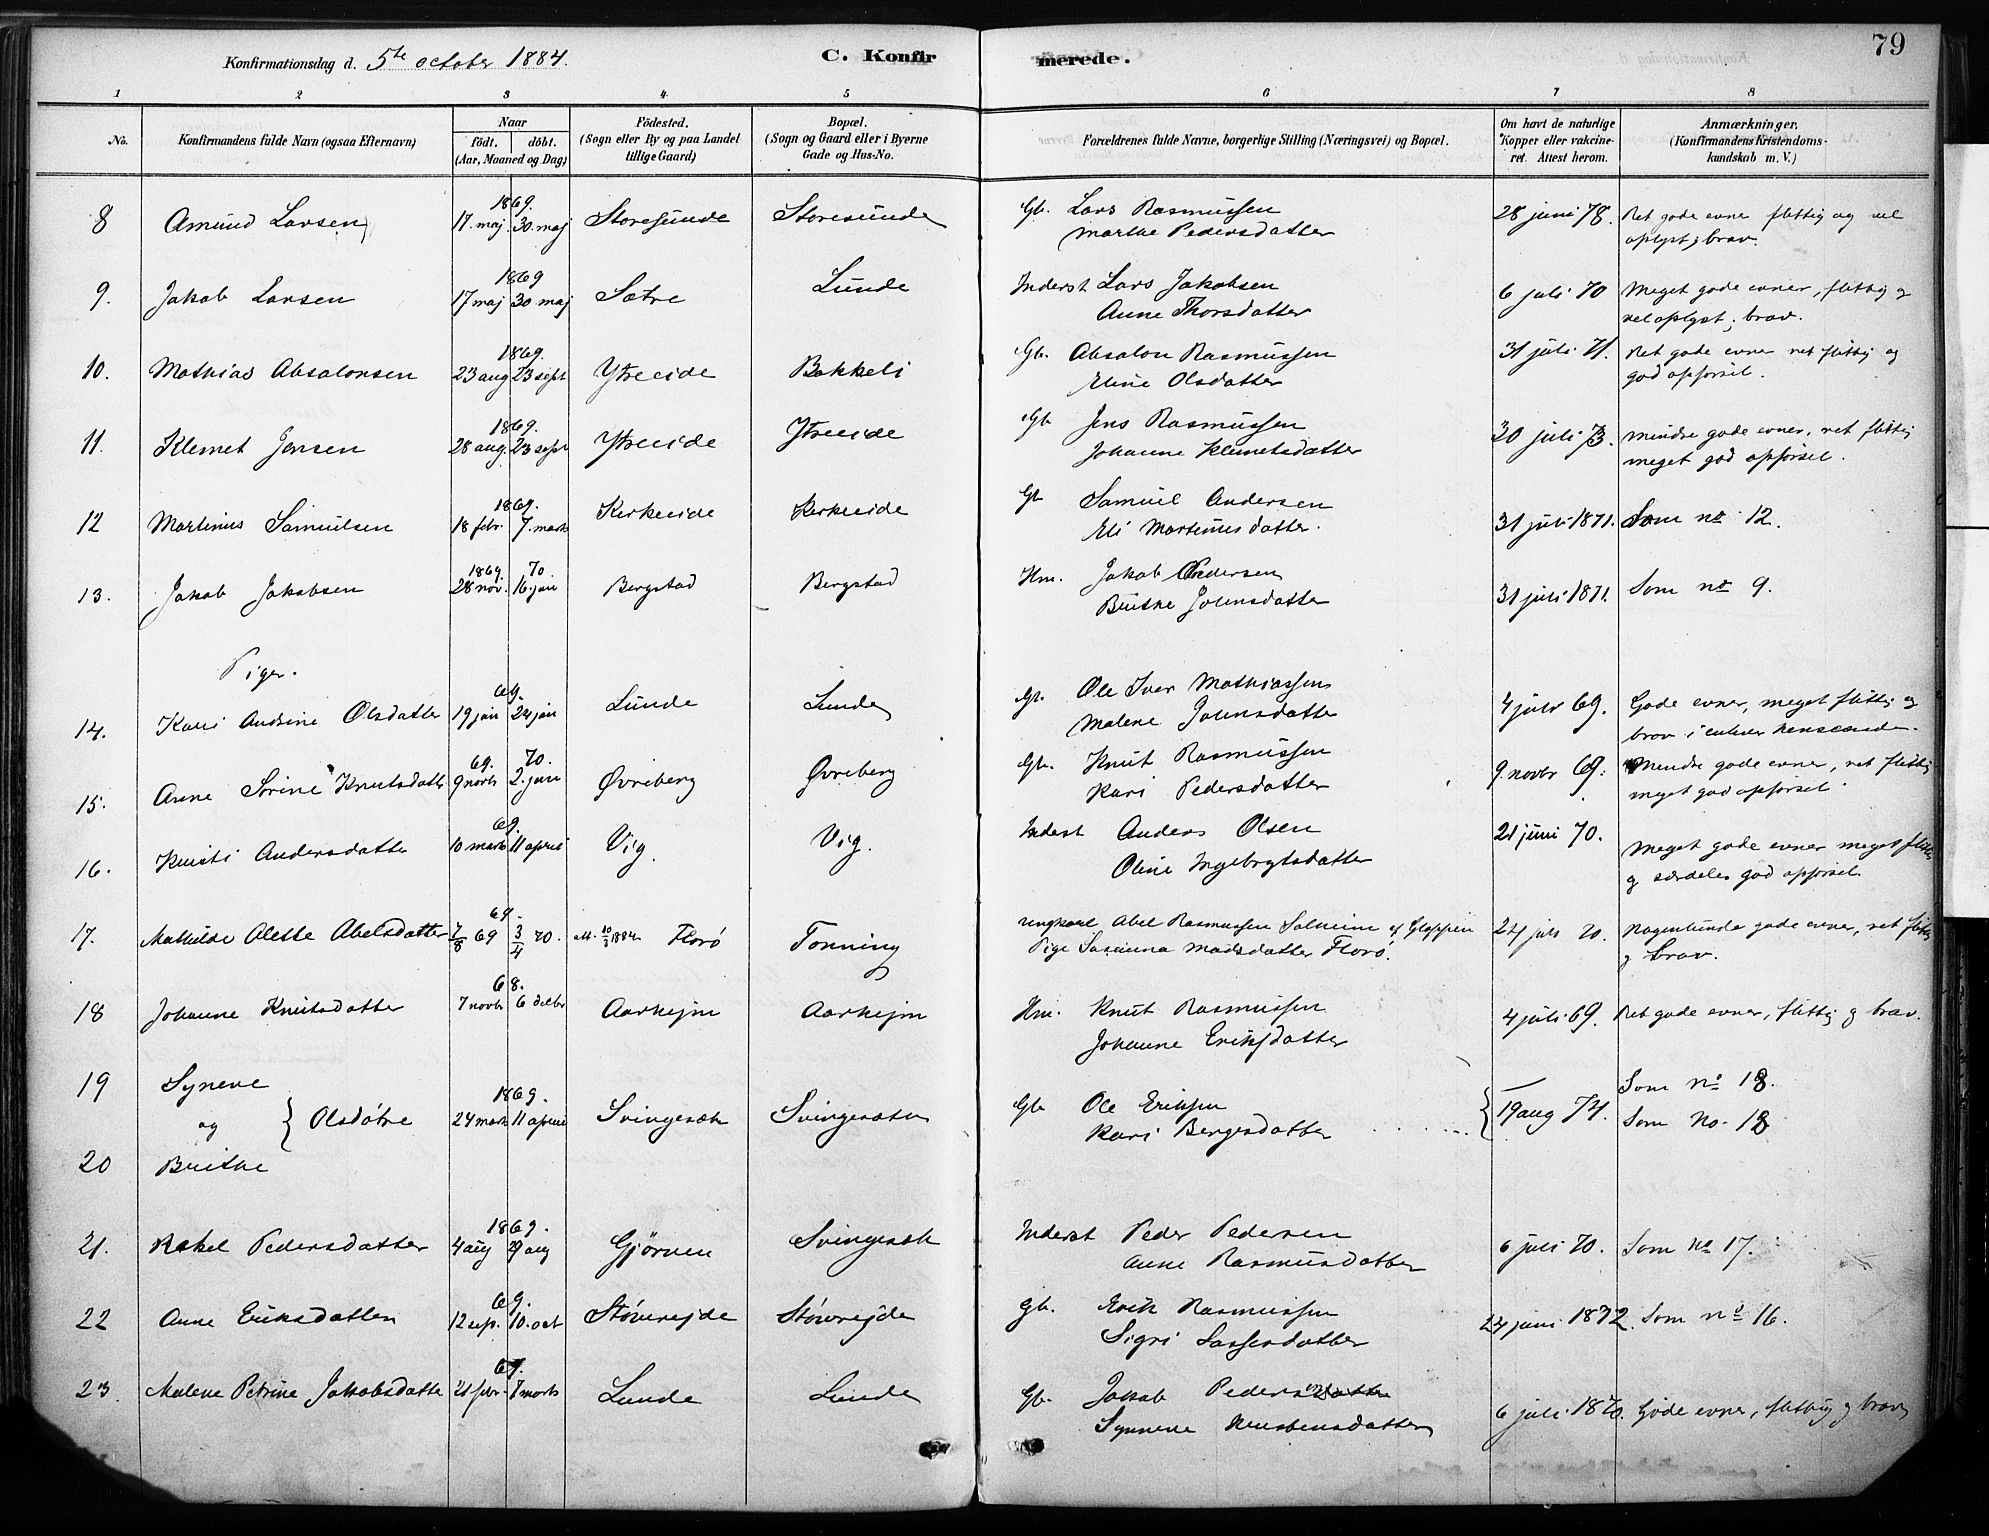 79
Konfirmationsdag d. 5te october 1884.
C. Konfirmerede.
1 2 3 4 5 6 7 8
No.
Konfirmandens fulde Navn (ogsaa Efternavn)
Naar
födt. döbt.
(Aar, Maaned og Dag)
Födested.
(Sogn eller By og paa Landet
tillige Gaard)
Bopæl.
(Sogn og Gaard eller i Byerne
Gade og Hus-No.
Forældrenes fulde Navne, borgerlige Stilling (Næringsvei) og Bopæl.
Om havt de naturlige
Kopper eller vakcine-
ret. Attest herom.
Anmærkninger.
(Konfirmandens Kristendoms-
kundskab m. V.)
8 Amund Larsen 1869. 17. maj. 30. maj Storesunde Storesunde Gb. Lars Rasmussen
Marthe Pedersdatter 28 juni 78. Ret gode evner flittig og vel
oplyst; brav.
9. Jakob Larsen 1869 17 maj 30 maj Sætre Lunde Inderst Lars Jakobsen
Anne Thorsdatter 6 juli 70 Meget gode evner, flittig og
vel oplyst; brav.
10. Mathias Absalonsen 1869. 23 aug 23 sept Ytreeide Bakkeli Gb. Absalon Rasmussen
Eline Olsdatter 31 juli 71. Ret gode evner ret flittig og
god opførsel.
11. Klemet Jensen 1869. 28 aug. 23 sept Ytreeide Ytreeide Gb Jens Rasmussen
Johanne Klemetsdatter 30 juli 73. Mindre gode evner, ret flittig
meget god opførsel.
12 Martinus Samuelsen 1869. 18 febr. 7. marts Kirkeeide Kirkeeide Gb Samuel Andersen
Eli Martinusdatter. 31 juli 1871. Som no 12.
13. Jakob Jakobsen 1869. 70 28 nov. 16. jan Bergstad Bergstad Hm. Jakob Pedersen
Brithe Johnsdatter 31 juli 1871. Som no 9.
Piger.
14. Kari Andrine Olsdatter 69. 19 jan 24 jan Lunde Lunde Gb. Ole Iver Mathiassen
Malene Johnsdatter 4 juli 69. Gode evner, meget flittig og
brav i enhver henseende.
15. Anne Sørine Knutsdatter 69. 70. 9 novb 2. jan Øvreberg Øvreberg Gb. Knut Rasmussen
Kari Pedersdatter 9. novbr 69. Mindre gode evner, ret flittig
meget god opførsel.
16. Kristi Andersdatter 69. 10 marts 11 april Vig. Vig. Inderst Anders Olsen
Oline Ingebrgtsdatter 21 juni 70. Meget gode evner meget flittig
og særdeles god opførsel.
17. Mathilde Olette Abelsdatter 69. 7/8 69 3/4 70. 1884 Florø Tonning Ungkarl Abel Rasmussen Solheim af Gloppen
Pige Susanna Madsdatter Florø. 24 juli 70. Nogenlunde gode evner, ret flittig
og brav.
18 Johanne Knutsdatter 68. 7 novb 6 decbr Aarhejm Aarhejm Hm. Knut Rasmussen
Johanne Eriksdatter 4 juli 69. Ret gode evner, flittig og brav.
19 Syneve
og } Olsdøtre 1869. 24 marts 11 april Svingesæth Svingesæth Gb Ole Eriksen
Kari Bergesdatter 19 aug 74. Som no 18.
Som no. 18
20 Brithe
21. Rakel Pedersdatter 1869. 4 aug 29 aug Gjørven Svingesæth Inderst Peder Pedersen
Anne Rasmusdatter 6 juli 70. Som no 17.
22 Anne Eriksdatter 69. 12 sep. 10. oct Støvrejde Støvrejde Gb. Erik Rasmussen
Sigri Lassesdatter 24 juni 1872. Som no 16.
23. Malene Petrine Jakobsdatter 69. 21 febr. 7 marts Lunde Lunde Gb. Jakob Pedersen
Synneve datter 6 juli 1870. Gode evner, flittig og brav